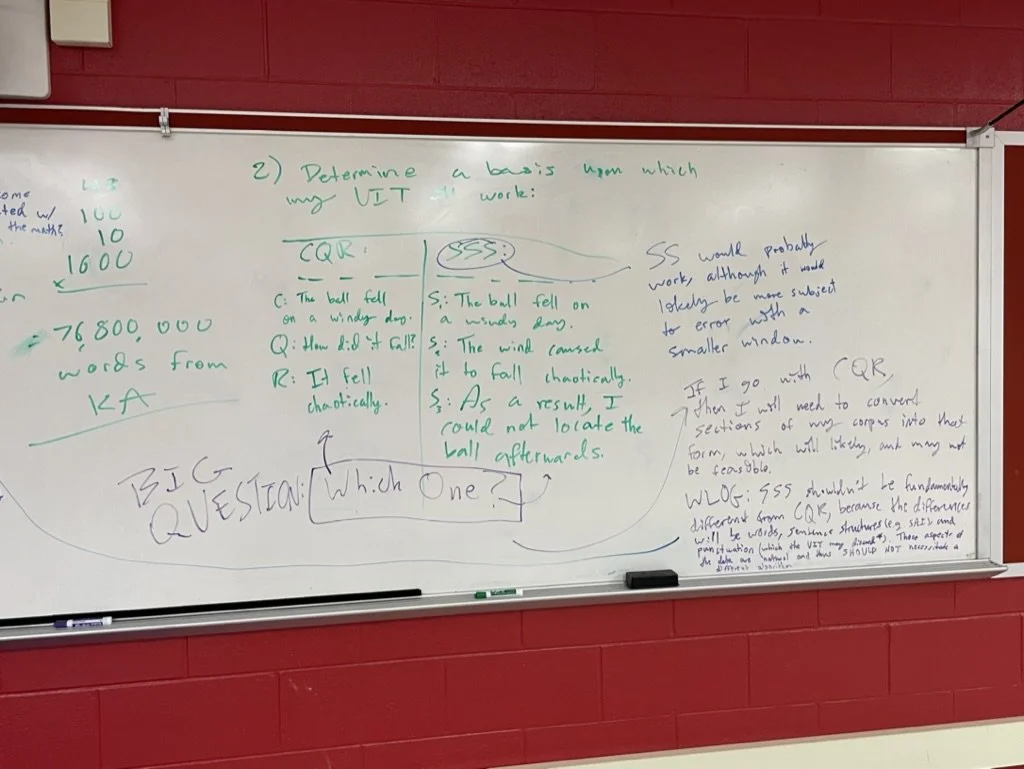 ome
ted w/
the math?
100
10
x 1600
= 76,800,000
words from
KA
2) Determine a basis upon which
my VIT will work:
CQR:
C: The ball fell
on a windy day.
Q: How did it fall?
R: It fell
chaotically.
SSS:
S₁: The ball fell on
a windy day.
S₂: The wind caused
it to fall chaotically.
S₃: As a result, I
could not locate the
ball afterwards.
BIG
QUESTION: Which One?
SS would probably
work, although it would
likely be more subject
to error with a
smaller window.
If I go with CQR,
then I will need to convert
sections of my corpus into that
form, which will likely, and may not
be feasible.
WLOG: SSS shouldn't be fundamentally
different from CQR, because the differences
will be words, sentence structures (e.g. and
punctuation (which the VIT may discard*). These aspects of
the data are natural and thus SHOULD NOT necessitate a
different algorithm